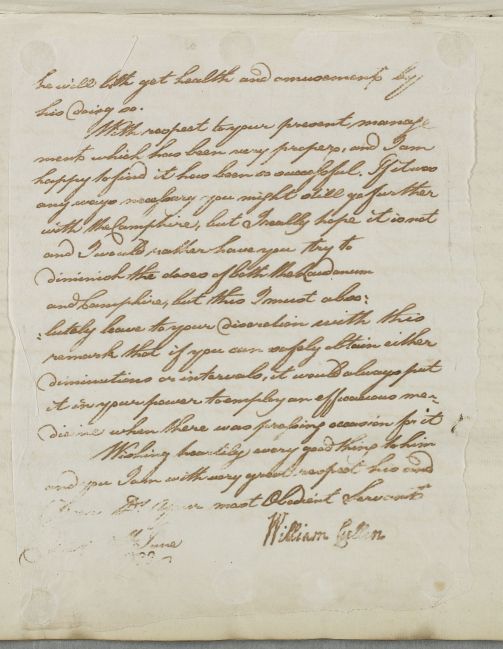 he will both get health and amusement by
his doing so.
With respect to your present manage
ment which has been very proper, and I am
happy to find it has been so successful. If it was
any ways necessary you might still go further
with the Camphire, but I really hope it is not
and I would rather have you try to
diminish the doses of both the Laudanum
and Camphire, but this I must abso-
-lutely leave to your discretion with this
remark that if you can safely obtain either
diminutions or intervals, it would always put
it in your power to employ an efficacious me-
dicine when there was pressing occasion for it
Wishing heartily every good thing to him
and you I am with very great respect his and
your most Obedient Servant
June
William Cullen